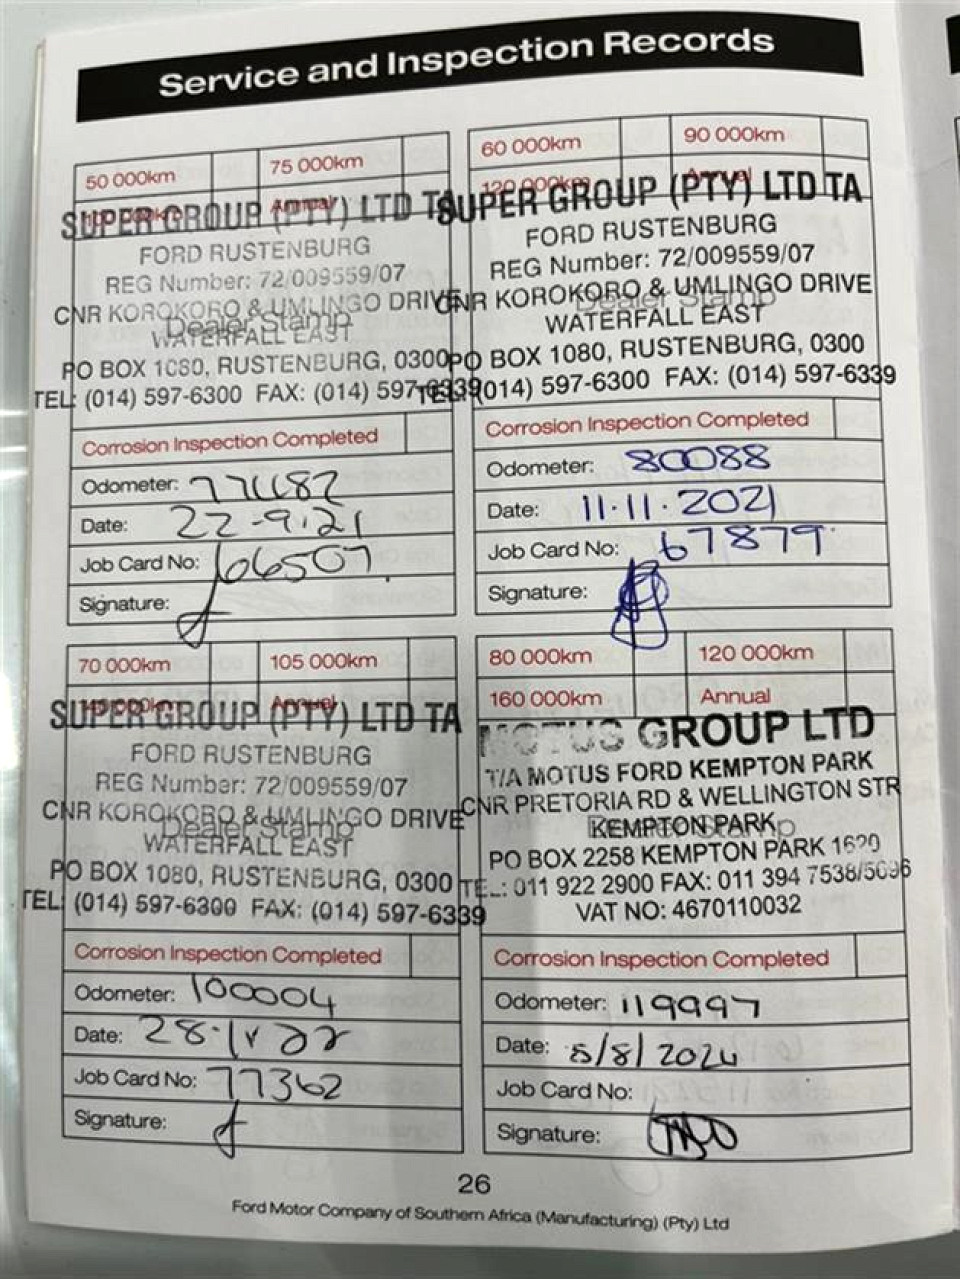 Service and Inspection Records
50 000km 75 000km
100 000km Annual
SUPER GROUP (PTY) LTD TA
FORD RUSTENBURG
REG Number: 72/009559/07
CNR KOROKORO & UMLINGO DRIVE
Dealer Stamp
WATERFALL EAST
PO BOX 1080, RUSTENBURG, 0300
TEL: (014) 597-6300 FAX: (014) 597-6339
Corrosion Inspection Completed
Odometer:
Date: 22-9-21
Job Card No: 66507
Signature:
60 000km 90 000km
120 000km Annual
SUPER GROUP (PTY) LTD TA
FORD RUSTENBURG
REG Number: 72/009559/07
CNR KOROKORO & UMLINGO DRIVE
Dealer Stamp
WATERFALL EAST
PO BOX 1080, RUSTENBURG, 0300
TEL: (014) 597-6300 FAX: (014) 597-6339
Corrosion Inspection Completed
Odometer: 80088
Date: 11.11.2021
Job Card No: 67879
Signature:
70 000km 105 000km
140 000km Annual
SUPER GROUP (PTY) LTD TA
FORD RUSTENBURG
REG Number: 72/009559/07
CNR KOROKORO & UMLINGO DRIVE
Dealer Stamp
WATERFALL EAST
PO BOX 1080, RUSTENBURG, 0300
TEL: (014) 597-6300 FAX: (014) 597-6339
Corrosion Inspection Completed
Odometer: 100004
Date: 28.
Job Card No: 77362
Signature:
80 000km 120 000km
160 000km Annual
MOTUS GROUP LTD
T/A MOTUS FORD KEMPTON PARK
CNR PRETORIA RD & WELLINGTON STR
KEMPTON PARK
Dealer Stamp
PO BOX 2258 KEMPTON PARK 1620
TEL: 011 922 2900 FAX: 011 394 7538/5696
VAT NO: 4670110032
Corrosion Inspection Completed
Odometer: 119997
Date: 5/8/2024
Job Card No:
Signature:
26
Ford Motor Company of Southern Africa (Manufacturing) (Pty) Ltd